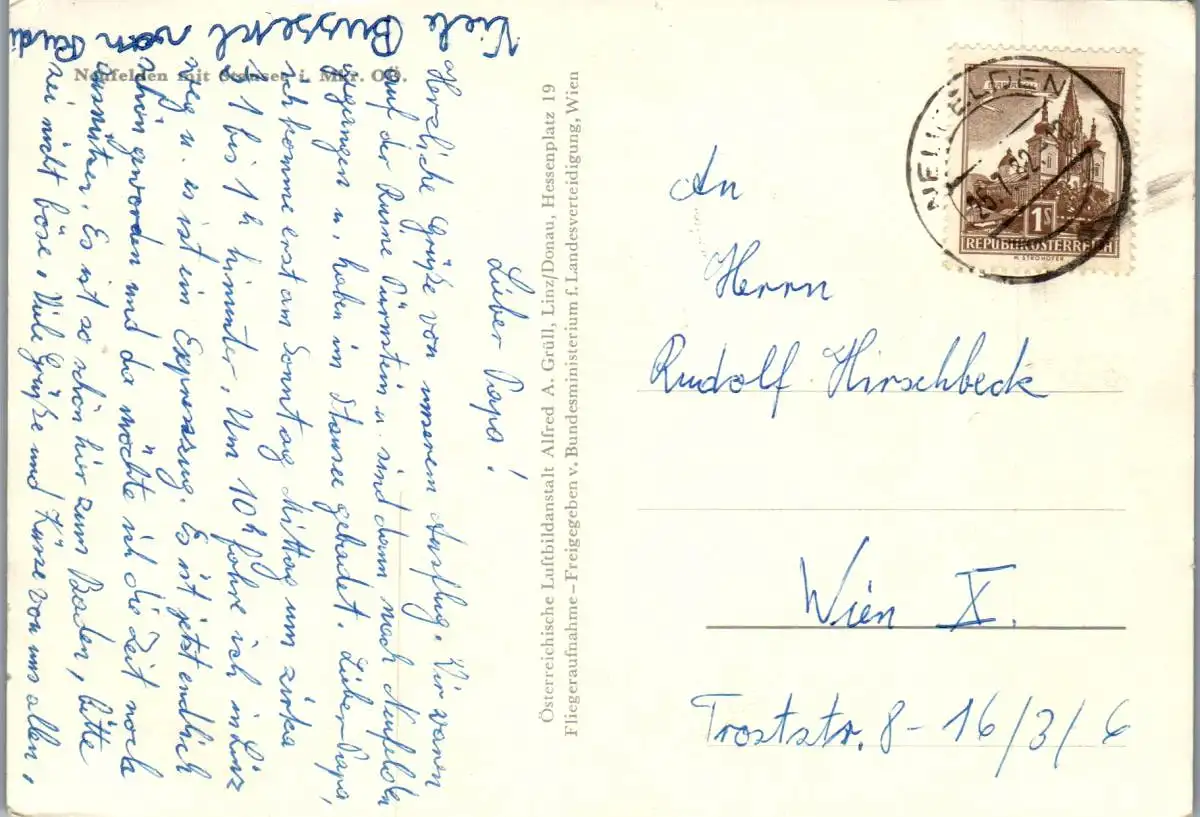 Neufelden mit Stausee i. Mkr. OÖ.
Lieber Papa!
Herzliche Grüße von unserem Ausflug. Wir waren
auf der Ruine Pürnstein u. sind dann nach Neufelden
gegangen u. haben im Stausee gebadet. Lieber Papa,
ich komme erst am Sonntag Mittag um zirka
1 bis 1h hinunter. Um 10h fahre ich in Linz
weg u. es ist ein Expresszug. Es ist jetzt endlich
schön geworden und da möchte ich die Zeit noch
ausnützen. Es ist so schön hier zum Baden, bitte
sei nicht böse. Viele Grüße und Küsse von uns allen,
Viele Busserl von Rudi
Österreichische Luftbildanstalt Alfred A. Grüll, Linz/Donau, Hessenplatz 19
Fliegeraufnahme–Freigegeben v. Bundesministerium f. Landesverteidigung, Wien
NEUFELDEN
26.7.62
1S
REPUBLIK ÖSTERREICH
H. STROHOFER
An
Herrn
Rudolf Hirschbeck
Wien X.
Troststr. 8-16/3/6